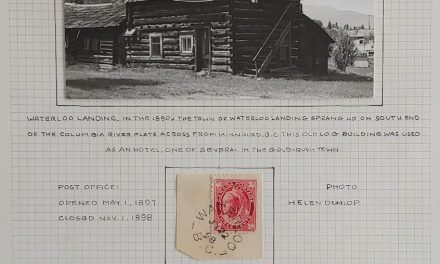 WATERLOO LANDING, IN THE 1890s THE TOWN OF WATERLOO LANDING SPRANG UP ON SOUTH END
OF THE COLUMBIA RIVER FLATS ACROSS FROM KINNAIRD, B.C. THIS OLD LOG BUILDING WAS USED
AS AN HOTEL, ONE OF SEVERAL IN THE GOLD-RUSH TOWN
POST OFFICE:
OPENED MAY 1, 1897
CLOSED NOV. 1, 1898
PHOTO
HELEN DUNLOP